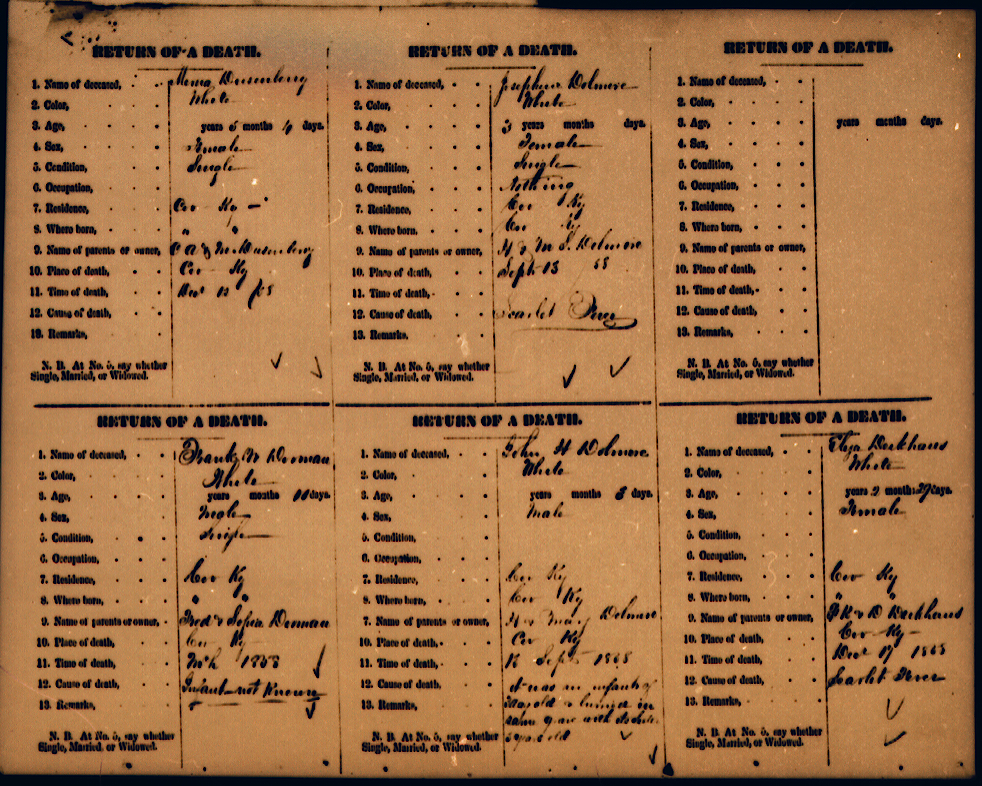 RETURN OF A DEATH.
1. Name of deceased, Mema Dusenberg
2. Color, White
3. Age, years 5 months 4 days.
4. Sex, Female
5. Condition, Single
6. Occupation,
7. Residence, Cov Ky –
8. Where born, " "
9. Name of parents or owner, C A & M Dusenberg
10. Place of death, Cov Ky
11. Time of death, 12
12. Cause of death,
13. Remarks,
N. B. At No. 5, say whether
Single, Married, or Widowed.
RETURN OF A DEATH.
1. Name of deceased, Josephine Delmore
2. Color, White
3. Age, 3 years months days.
4. Sex, Female
5. Condition, Single
6. Occupation, Nothing
7. Residence, Cov Ky
8. Where born. Cov Ky
9. Name of parents or owner, H & M S. Delmore
10. Place of death, Sept 13 58
11. Time of death,
12. Cause of death, Scarlet Fever
13. Remarks,
N. B. At No. 5, say whether
Single, Married, or Widowed.
RETURN OF A DEATH.
1. Name of deceased,
2. Color,
3. Age, years months days.
4. Sex,
5. Condition,
6. Occupation,
7. Residence,
8. Where born,
9. Name of parents or owner,
10. Place of death,
11. Time of death,
12. Cause of death,
13. Remarks,
N. B. At No. 5, say whether
Single, Married, or Widowed.
RETURN OF A DEATH.
1. Name of deceased, Frank W Derman
2. Color, White
3. Age, years months 10 days.
4. Sex, Male
5. Condition, Single
6. Occupation,
7. Residence, Cov Ky
8. Where born, " "
9. Name of parents or owner, Fred & Sophia Derman
10. Place of death, Cov Ky
11. Time of death, 1858
12. Cause of death, Infant not Known
13. Remarks,
N. B. At No. 5, say whether
Single, Married, or Widowed.
RETURN OF A DEATH.
1. Name of deceased, John H Delmore
2. Color, White
3. Age, years months 8 days.
4. Sex, Male
5. Condition,
6. Occupation,
7. Residence, Cov Ky
8. Where born, Cov Ky
7. Name of parents or owner, H & Mary Delmore
10. Place of death, Cov Ky
11. Time of death, Sept 1858
12. Cause of death, it was an infant of
13. Remarks, days old & buried in
same grave with
3 years old
N. B. At No. 5, say whether
Single, Married, or Widowed.
RETURN OF A DEATH.
1. Name of deceased, Eliza Darkhaus
2. Color, White
3. Age, years 2 months 27 days.
4. Sex, Female
5. Condition,
6. Occupation,
7. Residence, Cov Ky
8. Where born, " "
9. Name of parents or owner, & D Darkhaus
10. Place of death, Cov Ky
11. Time of death, Dec 17 1858
12. Cause of death, Scarlet Fever
13. Remarks,
N. B. At No. 5, say whether
Single, Married, or Widowed.